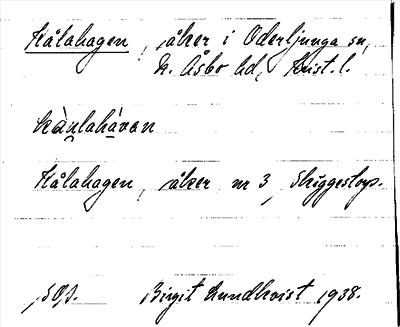 Kålahagen, åker i Oderljunga sn,
N. Åsbo hd, Krist. l.
kàulahávan
Kålahagen, åker nr 3, Skiggestorp.
Birgit Lundkvist 1938.